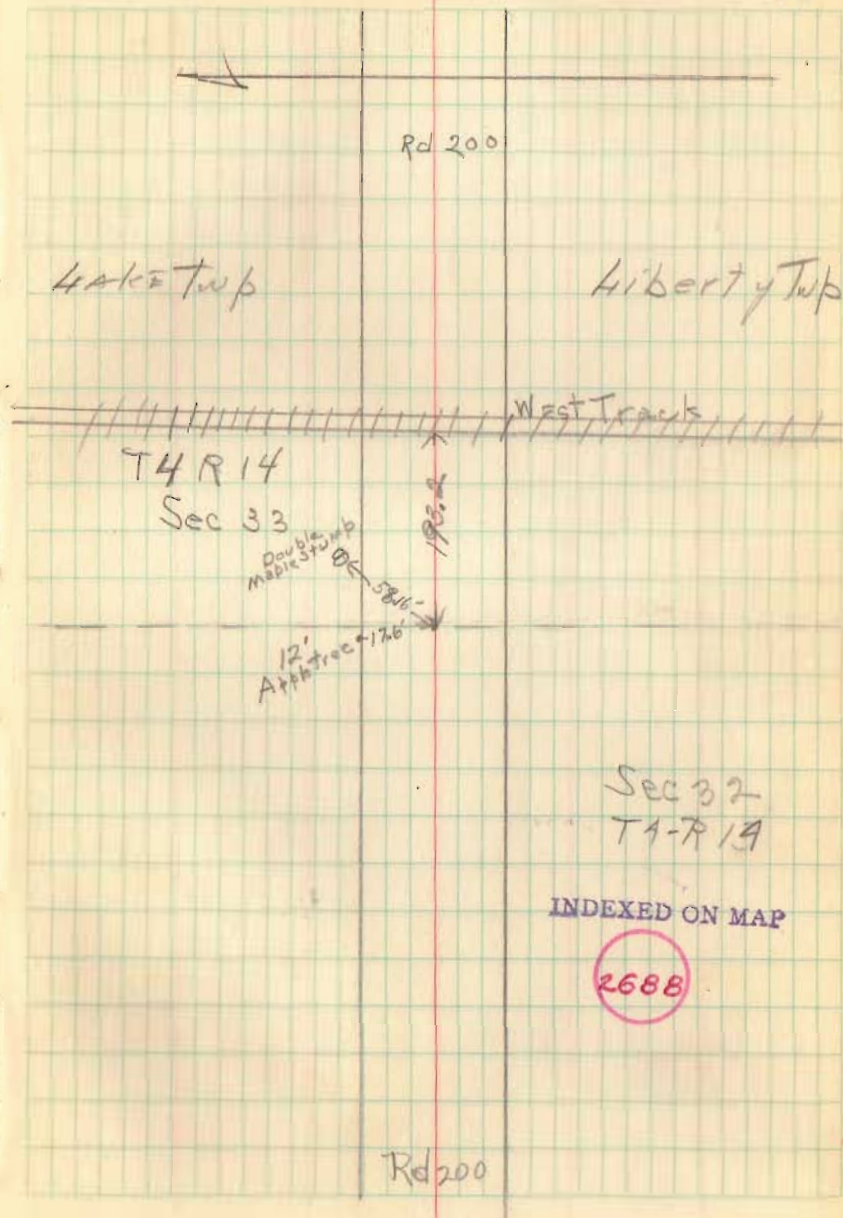 Rd 200
Lake Twp
Liberty Twp
West Track
T4 R 14
Sec 33
193.2
Double
Maple Stump
58.16'
12'
Apple tree 17.6'
Sec 32
T4-R 14
INDEXED ON MAP
2688
Rd 200